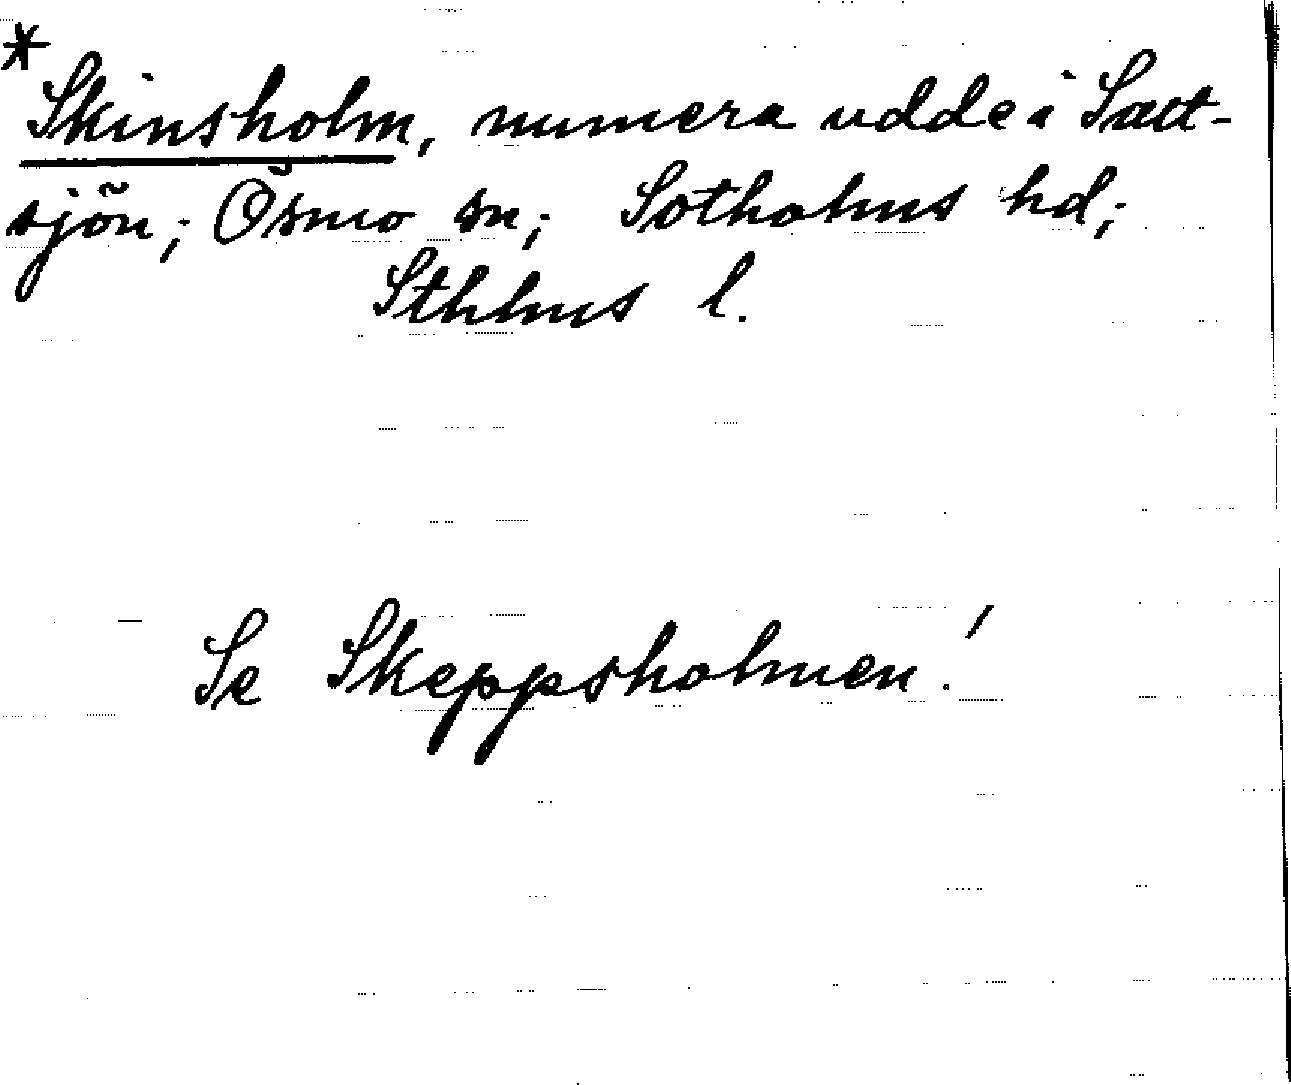 *
Skinsholm, numera udde i Salt-
sjön; Ösmo sn; Sotholms hd;
Sthlms l.
Se Skeppsholmen!